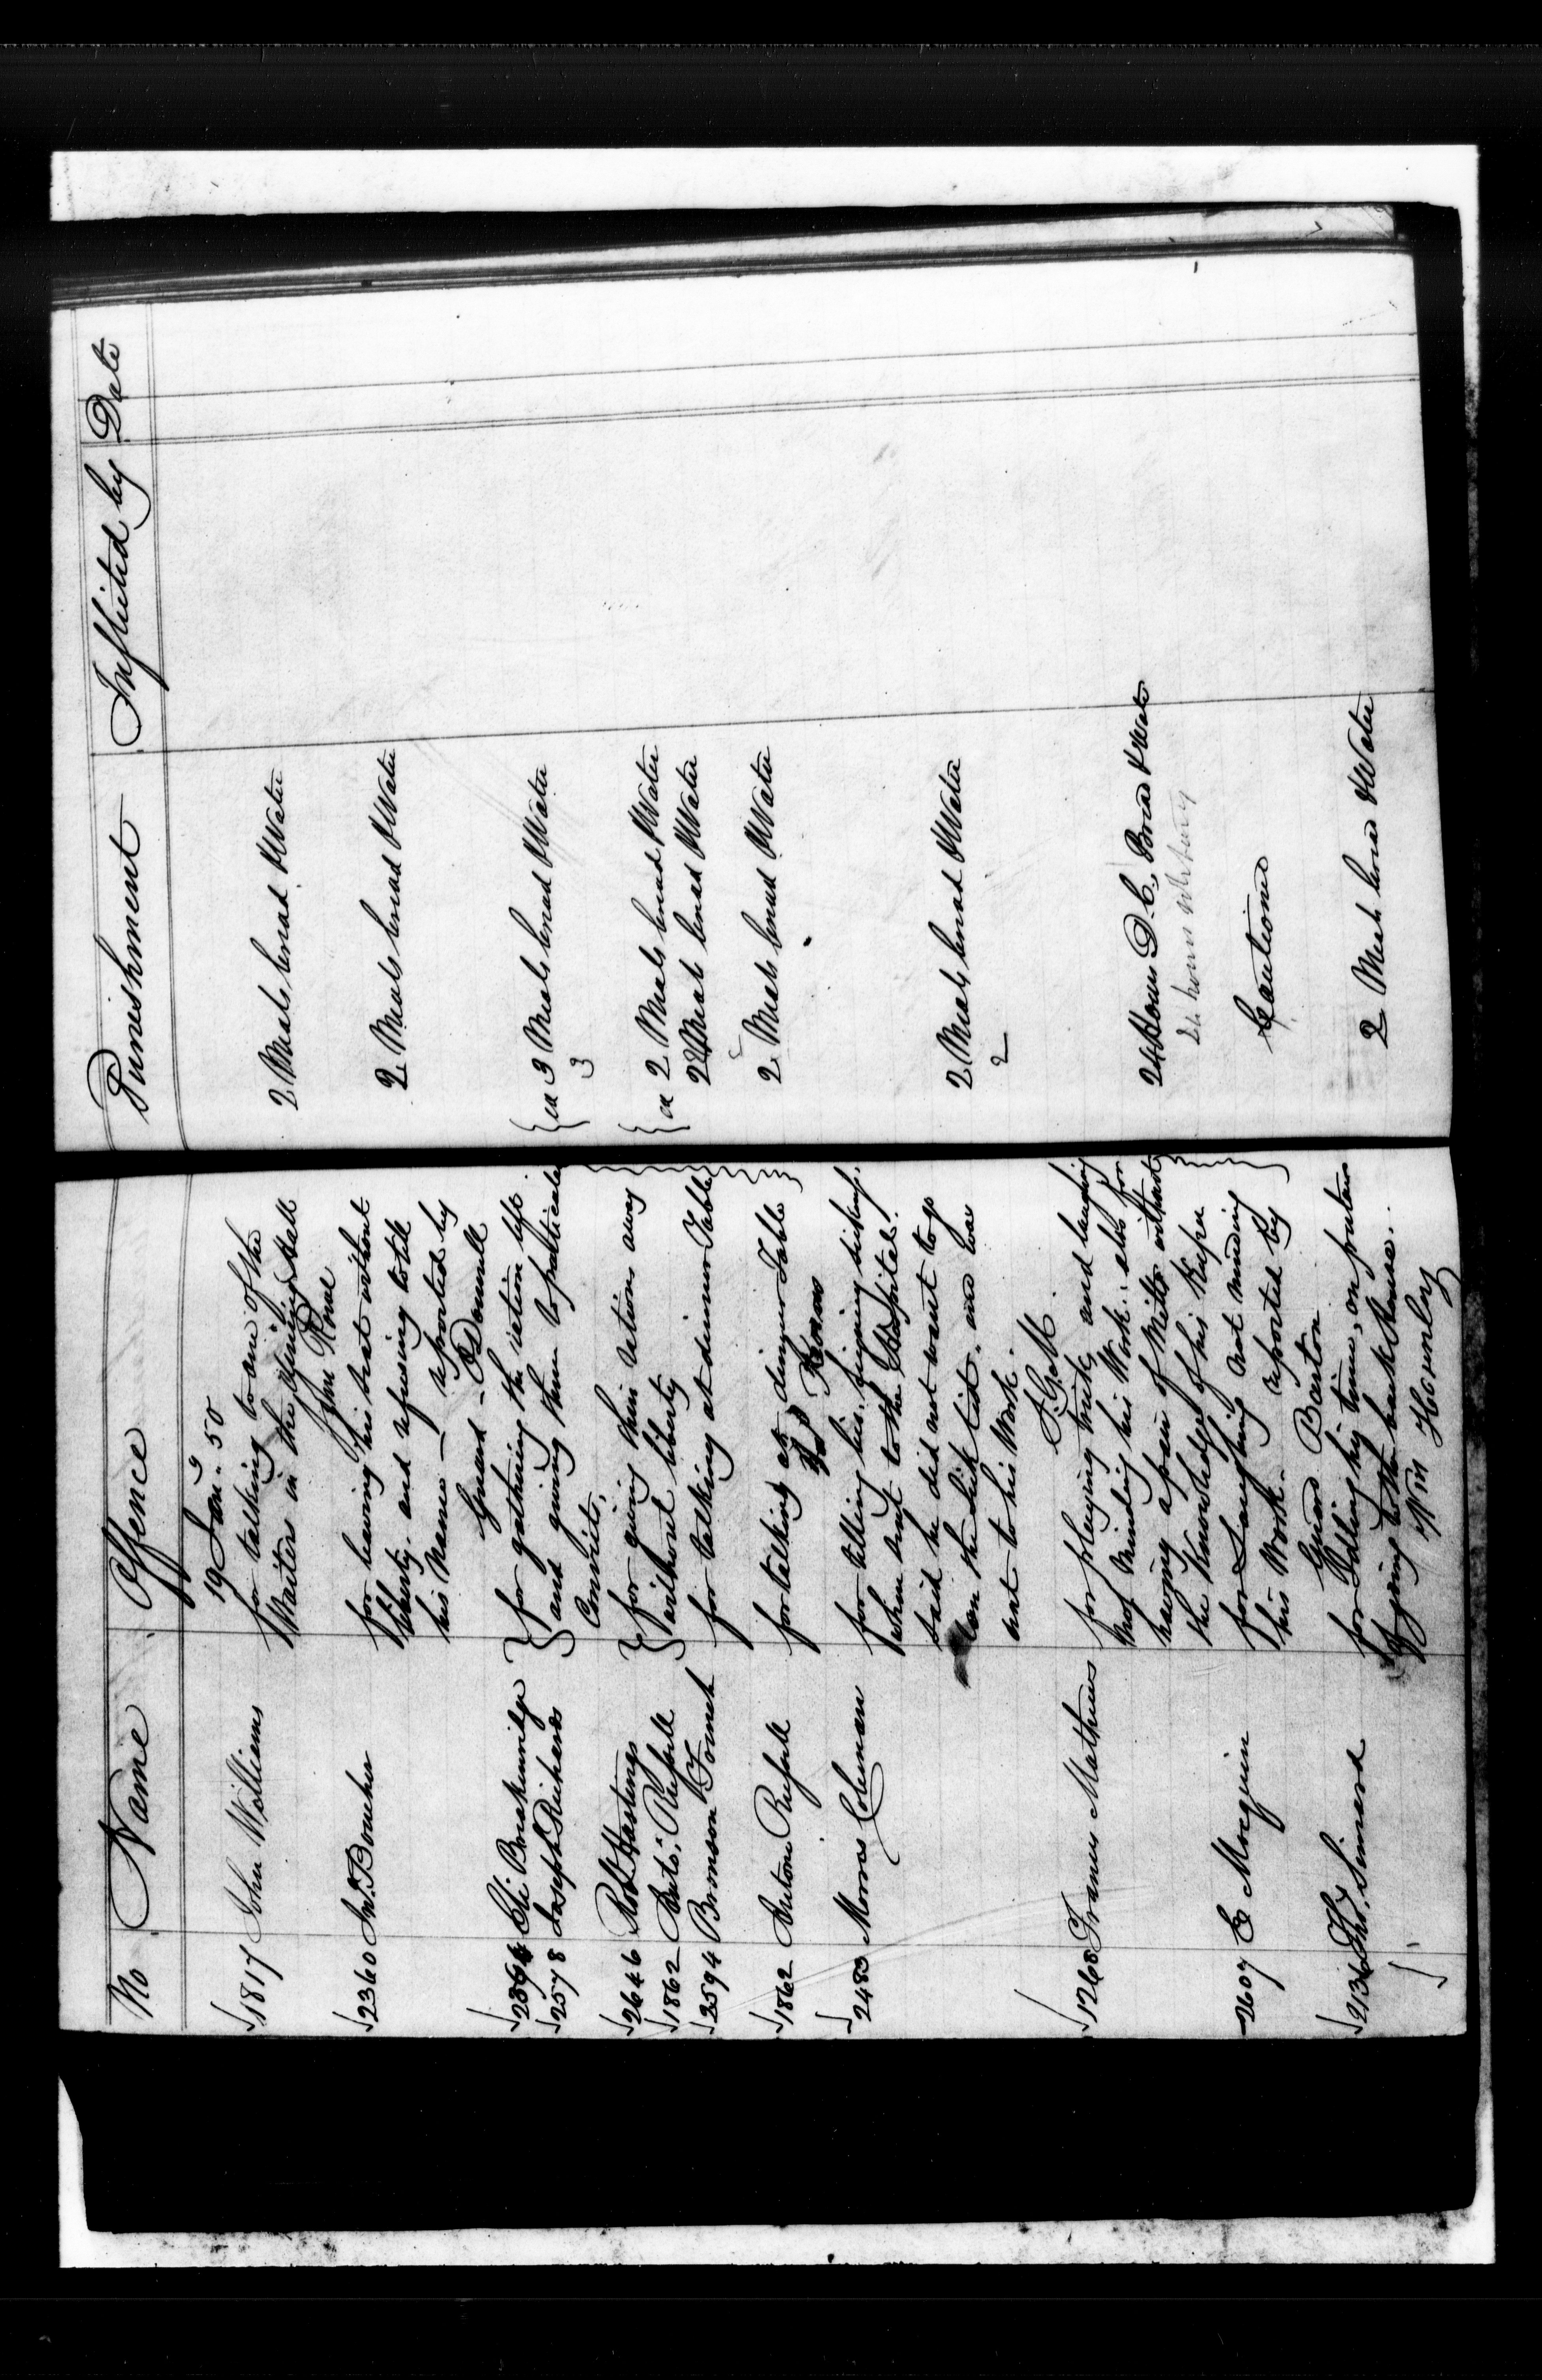 No Name Offence Punishment Inflicted by Date
19 Jany. 50
1817 John Williams for talking to one of the 2 Meals bread & Water
Waiters in the dining Hall
John
2360 Jno. Boucher for leaving his seat without 2 Meals bread & Water
liberty. and refusing to tell
his name — reported by
Guard - O'Donnell
Eli Breakenridge } for gathering the ration left { ea 3 Meals bread & Water
2578 Joseph Richards } and giving them to particular 3
Convicts.
2646 Robt Hastings } for giving their rations away { ea 2 Meals bread & Water
1862 Anto: } without liberty 2 Meals bread & Water
2594 Bronson for talking at dinner Table
1862 Antoni for talking at dinner Table } 2 Meals bread & Water
2483 Morris Coleman for telling lies, feigning sickness.
when sent to the Hospital.
said he did not want to go 2 Meals bread & Water
on the sick list. and was 2
sent to his Work.
1268 Francis Mathews for playing tricks, and laughing
not Minding his Work. also for 24 Hours D.C. Bread & Water
having a pair of Mitts without 24 hours
the Knowledge of his Keeper
2607 E for Laughing & not minding Cautioned
his Work. reported by
Guard Barton
Simard for Idling his time, on pretence 2 Meals bread & Water
of going to the